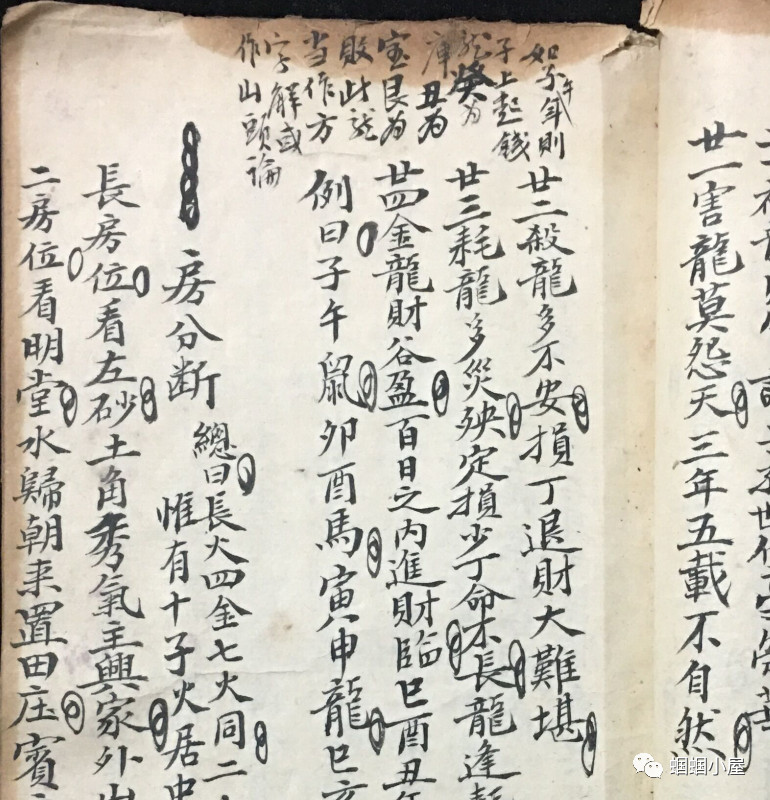 廿一害龍莫怨天三年五載不自然
如子午年則
子上起錢
龍癸為
庫丑為
宝艮為
敗此龍
当作方
字解或
作山頭論
廿二殺龍多不安損丁退財大難堪
廿三耗龍多災殃定損少丁命不長龍逢
廿四金龍財谷盈百日之内進財臨巳酉丑年
例曰子午鼠卯酉馬寅申龍巳亥
房分断
總曰長火四金七火同二
惟有十子火居中
長房位看左砂土角秀氣主興家外
二房位看明堂水歸朝来置田庄賓
蝈蝈小屋